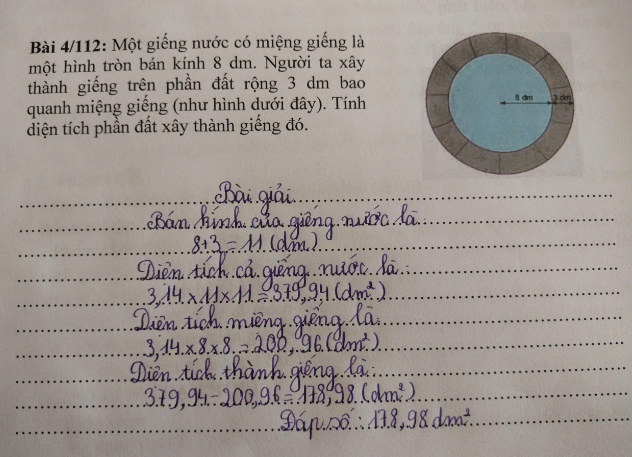 Bài 4/112: Một giếng nước có miệng giếng là
một hình tròn bán kính 8 dm. Người ta xây
thành giếng trên phần đất rộng 3 dm bao
quanh miệng giếng (như hình dưới đây). Tính
diện tích phần đất xây thành giếng đó.
8 dm
3 dm
Bài giải
Bán kính của giếng nước là:
8+3=11 (dm)
Diện tích cả giếng nước là:
3,14 x 11 x 11 = 379,94 (dm²)
Diện tích miệng giếng là:
3,14 x 8 x 8 = 200,96 (dm²)
Diện tích thành giếng là:
379,94 - 200,96 = 178,98 (dm²)
Đáp số: 178,98 dm²